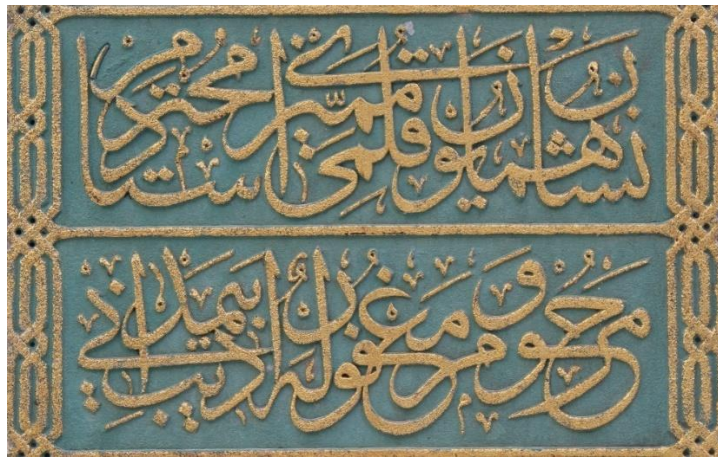 نشان همايون قلمى مميزى محترم استاد
مرحوم و مغفور له اديب بيمدانى